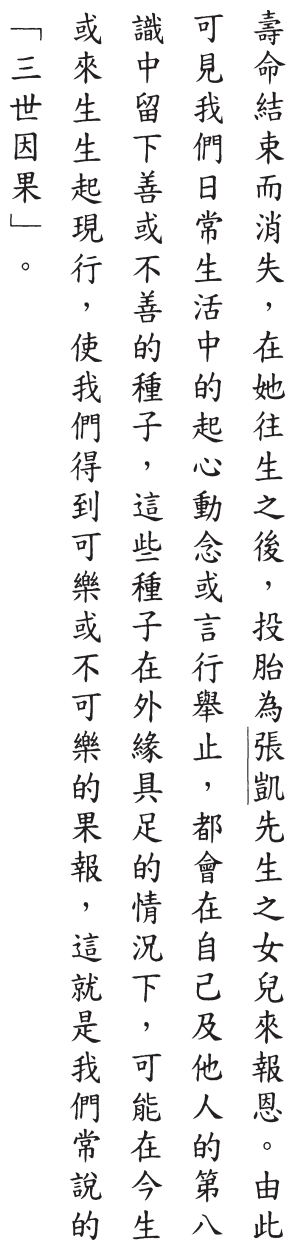 壽命結束而消失，在她往生之後，投胎為張凱先生之女兒來報恩。由此
可見我們日常生活中的起心動念或言行舉止，都會在自己及他人的第八
識中留下善或不善的種子，這些種子在外緣具足的情況下，可能在今生
或來生生起現行，使我們得到可樂或不可樂的果報，這就是我們常說的
「三世因果」。